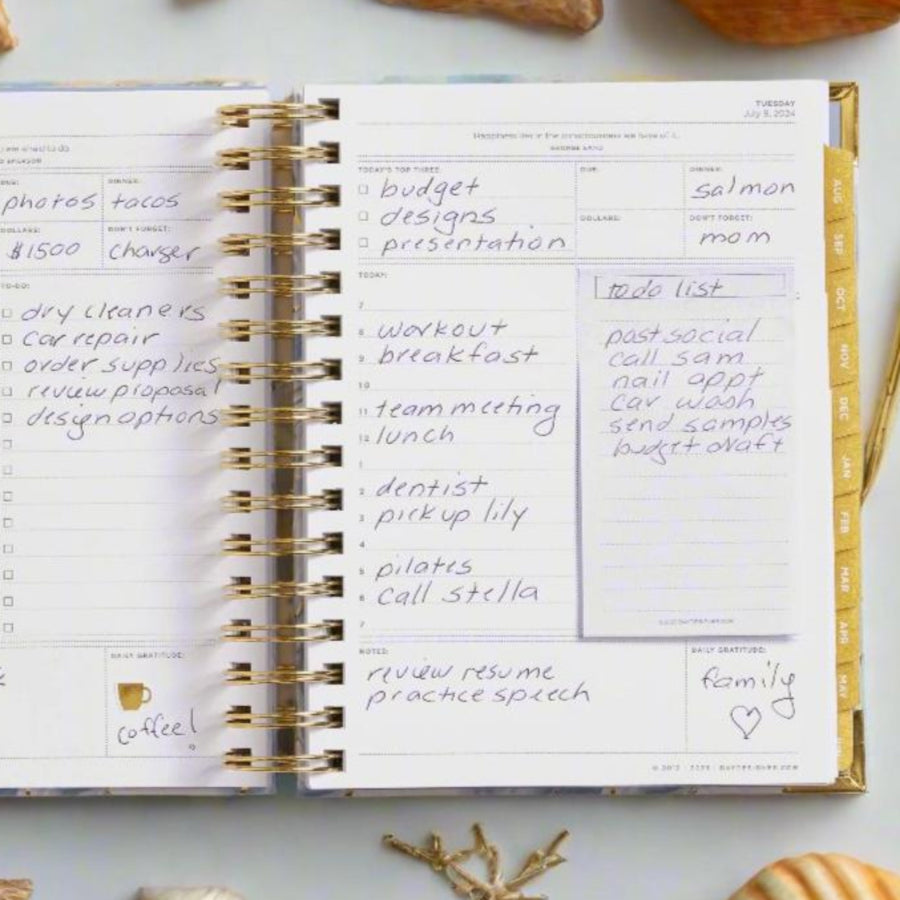 photos
DINNER:
tacos
DOLLARS:
$1500
DON'T FORGET:
charger
TO-DO:
dry cleaners
car repair
order supplies
review proposal
design options
DAILY GRATITUDE:
coffee!
TUESDAY
July 9, 2024
GEORGE SAND
TODAY'S TOP THREE:
budget
designs
presentation
DUE:
DINNER:
salmon
DOLLARS:
DON'T FORGET:
mom
TODAY:
7
8 workout
9 breakfast
10
11 team meeting
12 lunch
1
2 dentist
3 pick up lily
4
5 pilates
6 call stella
7
to do list
post social
call sam
nail appt
car wash
send samples
budget draft
NOTES:
review resume
practice speech
DAILY GRATITUDE:
family
AUG
SEP
OCT
NOV
DEC
JAN
FEB
MAR
APR
MAY